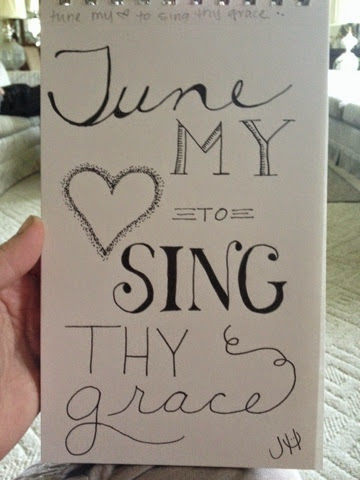 tune my ♡ to sing thy grace
Tune
MY
TO
SING
THY
grace